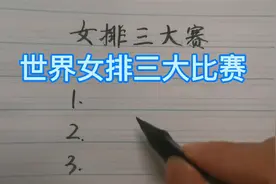 女排三大赛
世界女排三大比赛
1.
2.
3.